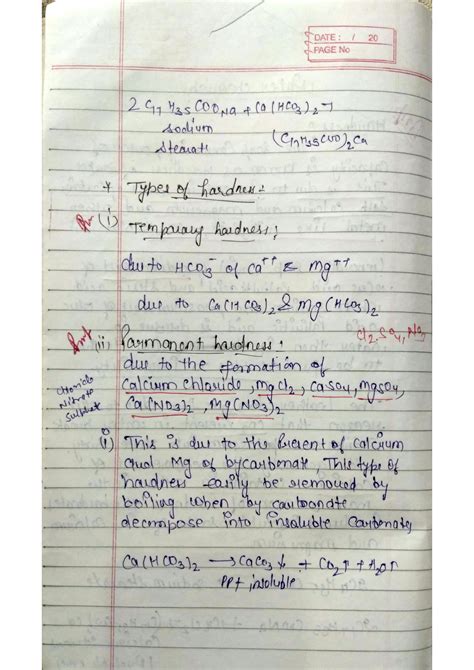 DATE: / 20
PAGE No
2 C17 H35 COONa + Ca(HCO3)2 →
Sodium
Stearate
(C17H35COO)2Ca
* Types of hardness:
(i) Temporary hardness:
due to HCO3⁻ of Ca++ & Mg++
due to Ca(HCO3)2 & Mg(HCO3)2
Cl2, SO4, NO3
Imp (ii) Parmanent hardness:
due to the formation of
Chloride
Nitrate
Sulphate
calcium chloride, MgCl2, CaSO4, MgSO4,
Ca(NO3)2, Mg(NO3)2
(i) This is due to the Present of Calcium
and Mg of bycarbonate, This type of
hardness easily be removed by
boiling when by carbonate
decmpose into insoluble Carbonates
Ca(HCO3)2 → CaCO3↓ + CO2↑ + H2O↑
PPt insoluble